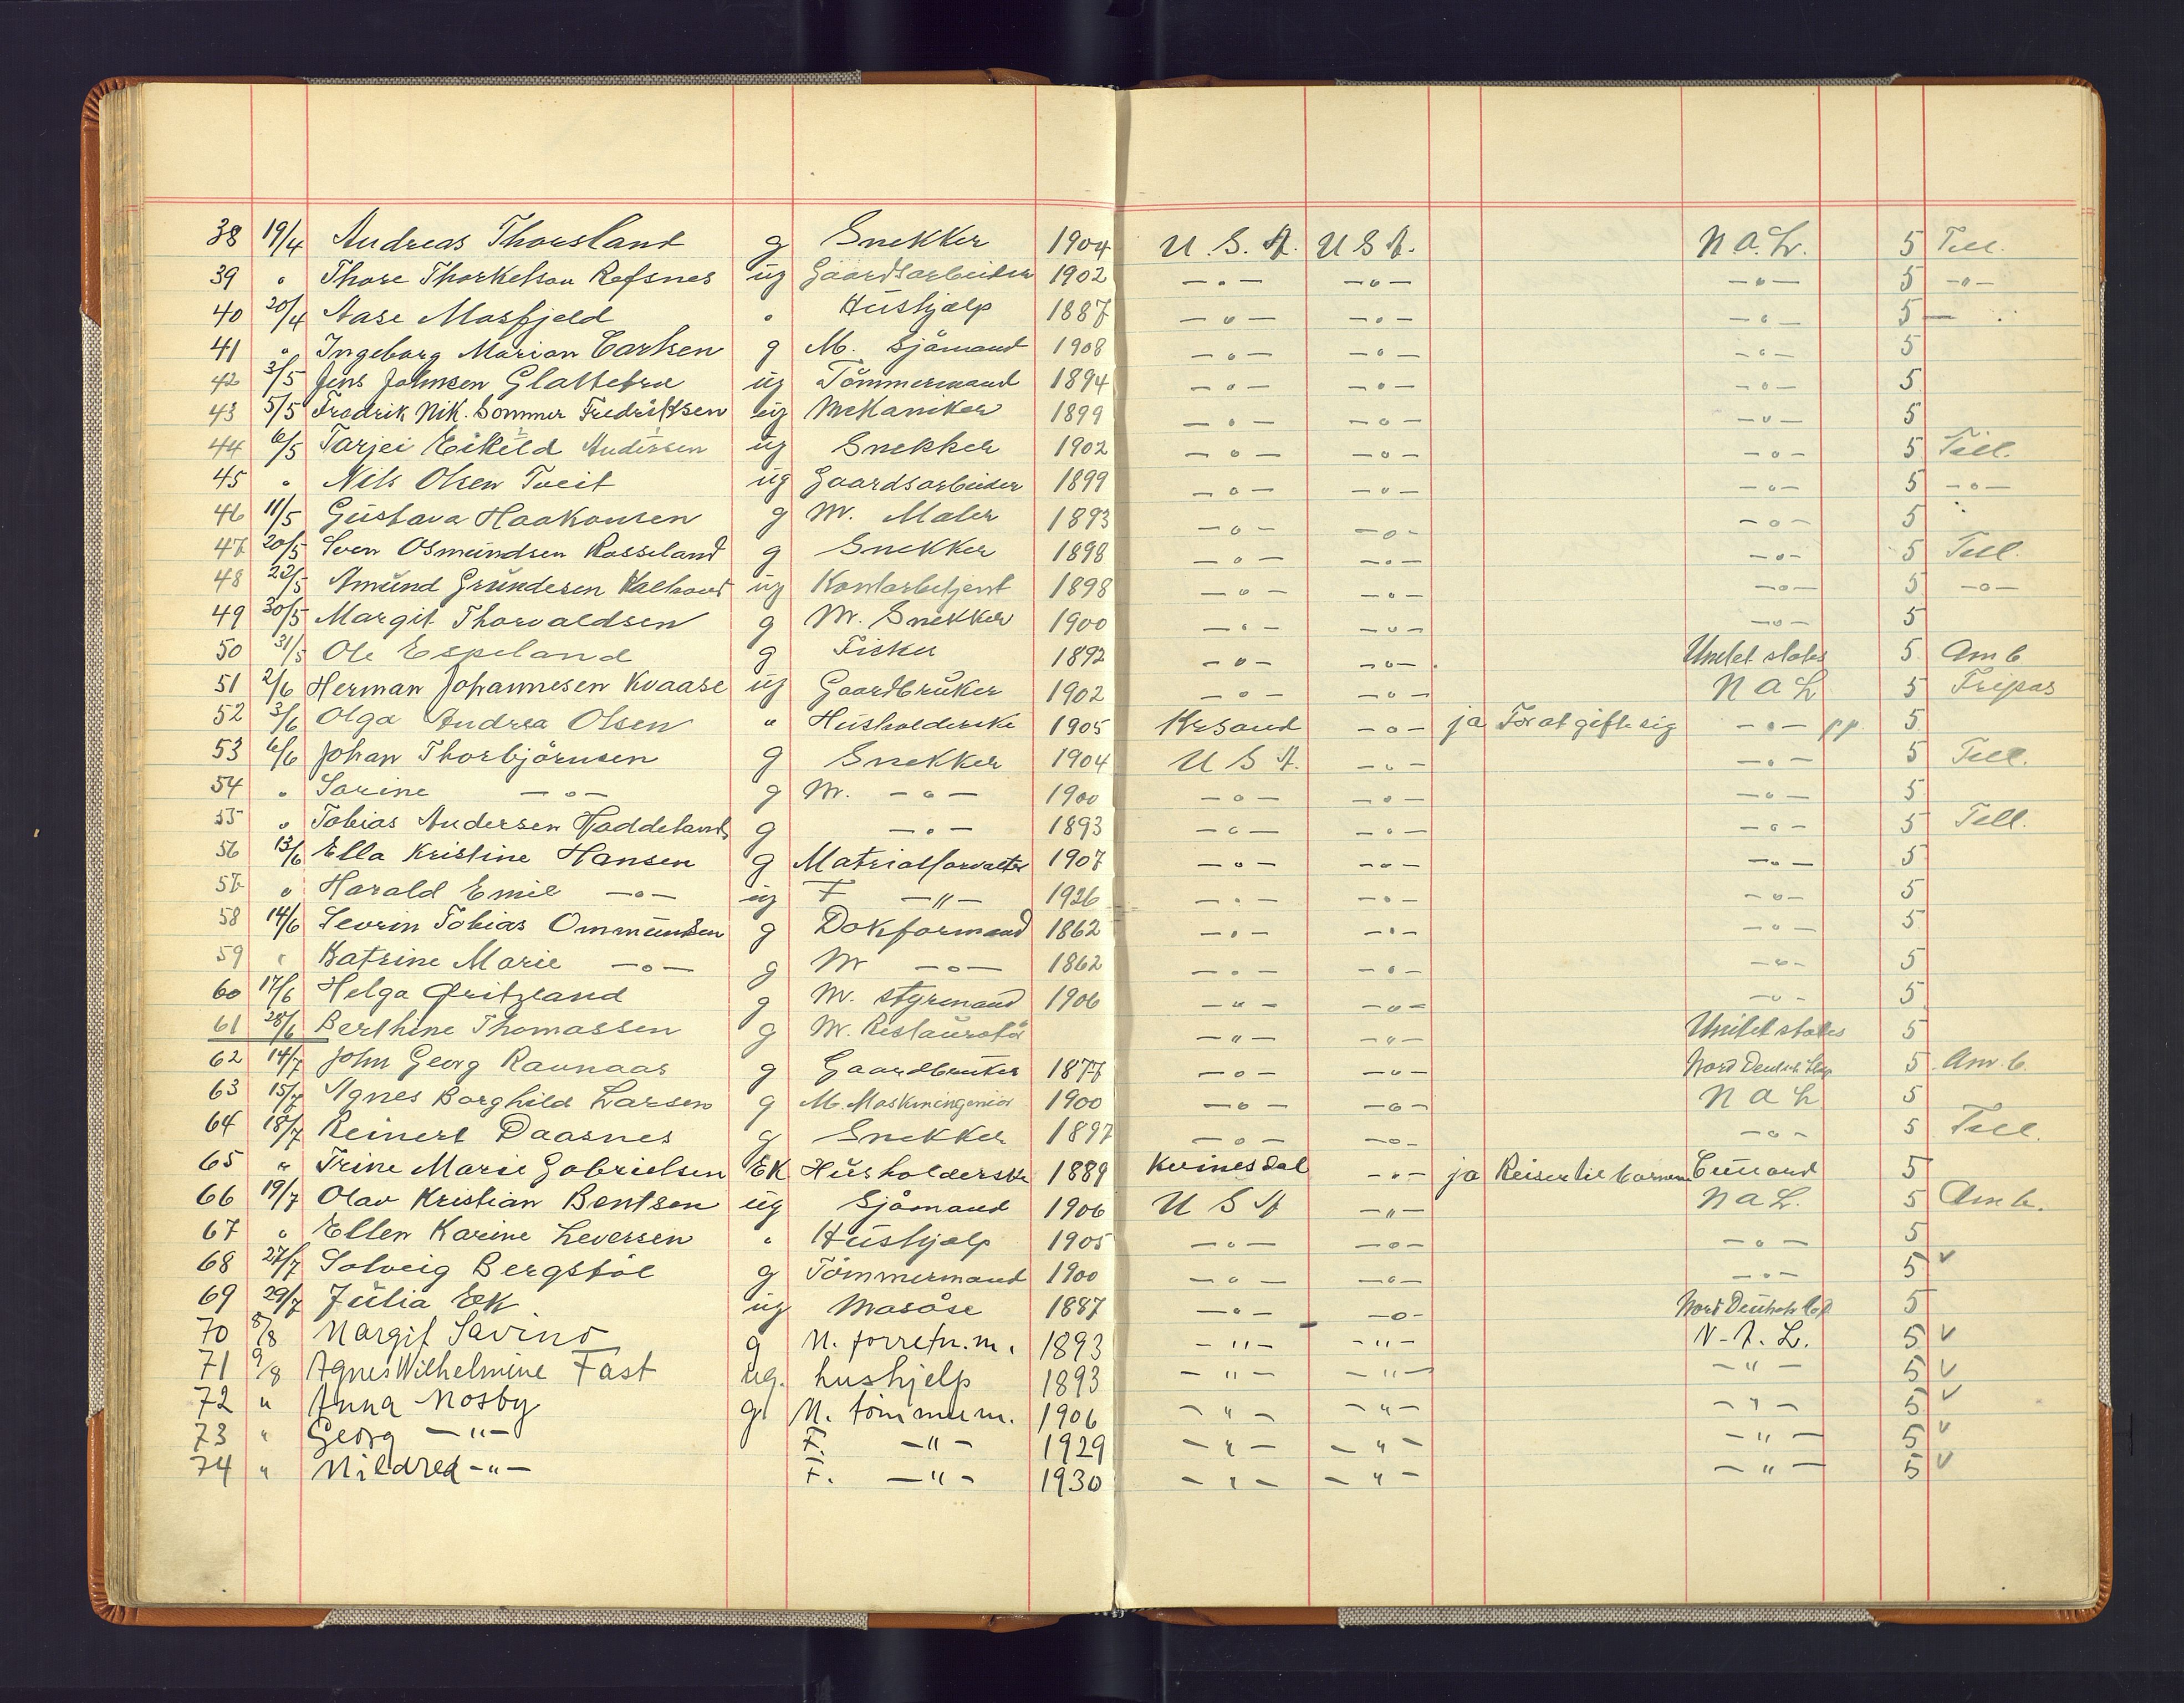 38 19/4 Andreas Thorsland g Snekker 1904 U.S.A. U S A. N A. L. 5 Till.
39 " Thore Thorkelsen Refsnes ug Gaardsarbeider 1902 -"- -"- -"- 5 -"-
40 20/4 Aase Mosfjeld " Hushjælp 1887 -"- -"- -"- 5 —
41 " Ingeborg Marion Carlsen g M. Sjømand 1908 -"- -"- -"- 5
42 3/5 Jens Johnsen Glattetre ug Tømmermand 1894 -"- -"- -"- 5
43 5/5 Fredrik Nik. Sommer Fredriksen ug Mekaniker 1899 -"- -"- -"- 5
44 6/5 Tarjei Eikild Andersen ug Snekker 1902 -"- -"- -"- 5 Till.
45 " Nils Olsen Tveit ug Gaardsarbeider 1899 -"- -"- -"- 5 -"-
46 11/5 Gustava Haakonsen g M. Maler 1893 -"- -"- -"- 5
47 20/5 Sven Osmundsen Rosseland g Snekker 1898 -"- -"- -"- 5 Till.
48 22/5 Amund Grundesen ug Kontorbetjent 1898 -"- -"- -"- 5 -"-
49 30/5 Margit Thorvaldsen g M. Snekker 1900 -"- -"- -"- 5
50 31/5 Ole Espeland g Fisker 1892 -"- -"- Unitet states 5 Am b
51 2/6 Herman Johannesen Kvaase ug Gaardbruker 1902 -"- -"- N A L 5 Fripas
52 3/6 Olga Andrea Olsen " Husholderske 1905 Krsand -"- ja For at gifte sig -"- pp. 5
53 6/6 Johan Thorbjørnsen g Snekker 1904 U S A. -"- -"- 5 Till.
54 " Sarine -"- g M. -"- 1900 -"- -"- -"- 5
55 " Tobias Andersen Haddeland g -"- 1893 -"- -"- -"- 5 Till.
56 13/6 Ella Kristine Hansen g Matrialforvalter 1907 -"- -"- -"- 5
57 " Harald Emil -"- ug F -"- 1926 -"- -"- -"- 5
58 14/6 Sevrin Tobias Ommundsen g Dokformand 1862 -"- -"- -"- 5
59 " Katrine Marie -"- g M -"- 1862 -"- -"- -"- 5
60 17/6 Helga Qvitzland g M. styrmand 1906 -"- -"- -"- 5
61 28/6 Berthine Thomassen g M. Restauratør -"- -"- Unitet states 5
62 14/7 John Georg Raunaas g Gaardbruker 1877 -"- -"- Nord Deutch 5 Am. b.
63 15/7 Agnes Borghild Larsen g M. Maskiningeniør 1900 -"- -"- N A L 5
64 18/7 Reinert Daasnes g Snekker 1897 -"- -"- -"- 5 Till.
65 " Trine Marie Gabrielsen EK Husholderske 1889 Kvinesdal -"- ja Reiser til barnene Cunard 5
66 19/7 Olav Kristian Bentsen ug Sjømand 1906 U S A -"- N A L. 5 Am b.
67 " Ellen Karine Leversen " Hushjælp 1905 -"- -"- -"- 5
68 27/7 Solveig Bergstøl g Tømmermand 1900 -"- -"- -"- 5 v
69 29/7 Julia Ek ug Masøse 1887 -"- -"- Nord Deutch 5
70 8/8 Margit Savino g M. forretn.m. 1893 -"- -"- N. A. L. 5 v
71 9/8 Agnes Wilhelmine Fast ug. hushjelp 1893 -"- -"- -"- 5 v
72 " Anna Mosby g M. tømmerm. 1906 -"- -"- -"- 5 v
73 " Georg -"- F. -"- 1929 -"- -"- -"- 5 v
74 " Mildred -"- F. -"- 1930 -"- -"- -"- 5 v